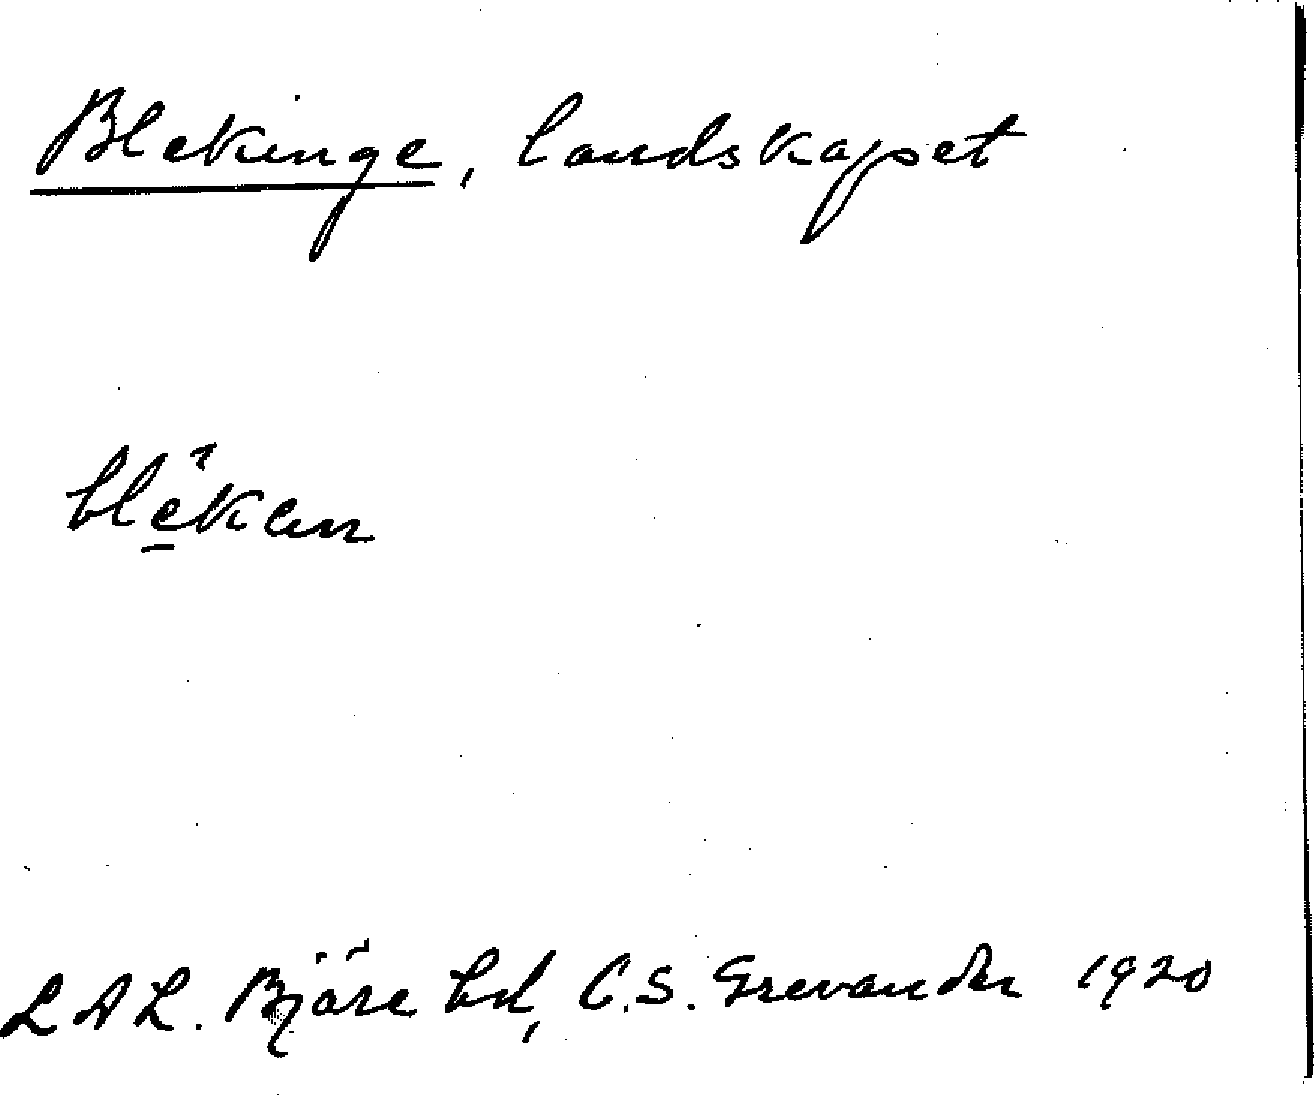 Blekinge, landskapet
blekin
LAL. Bjäre hd, C.S. Grevander 1920